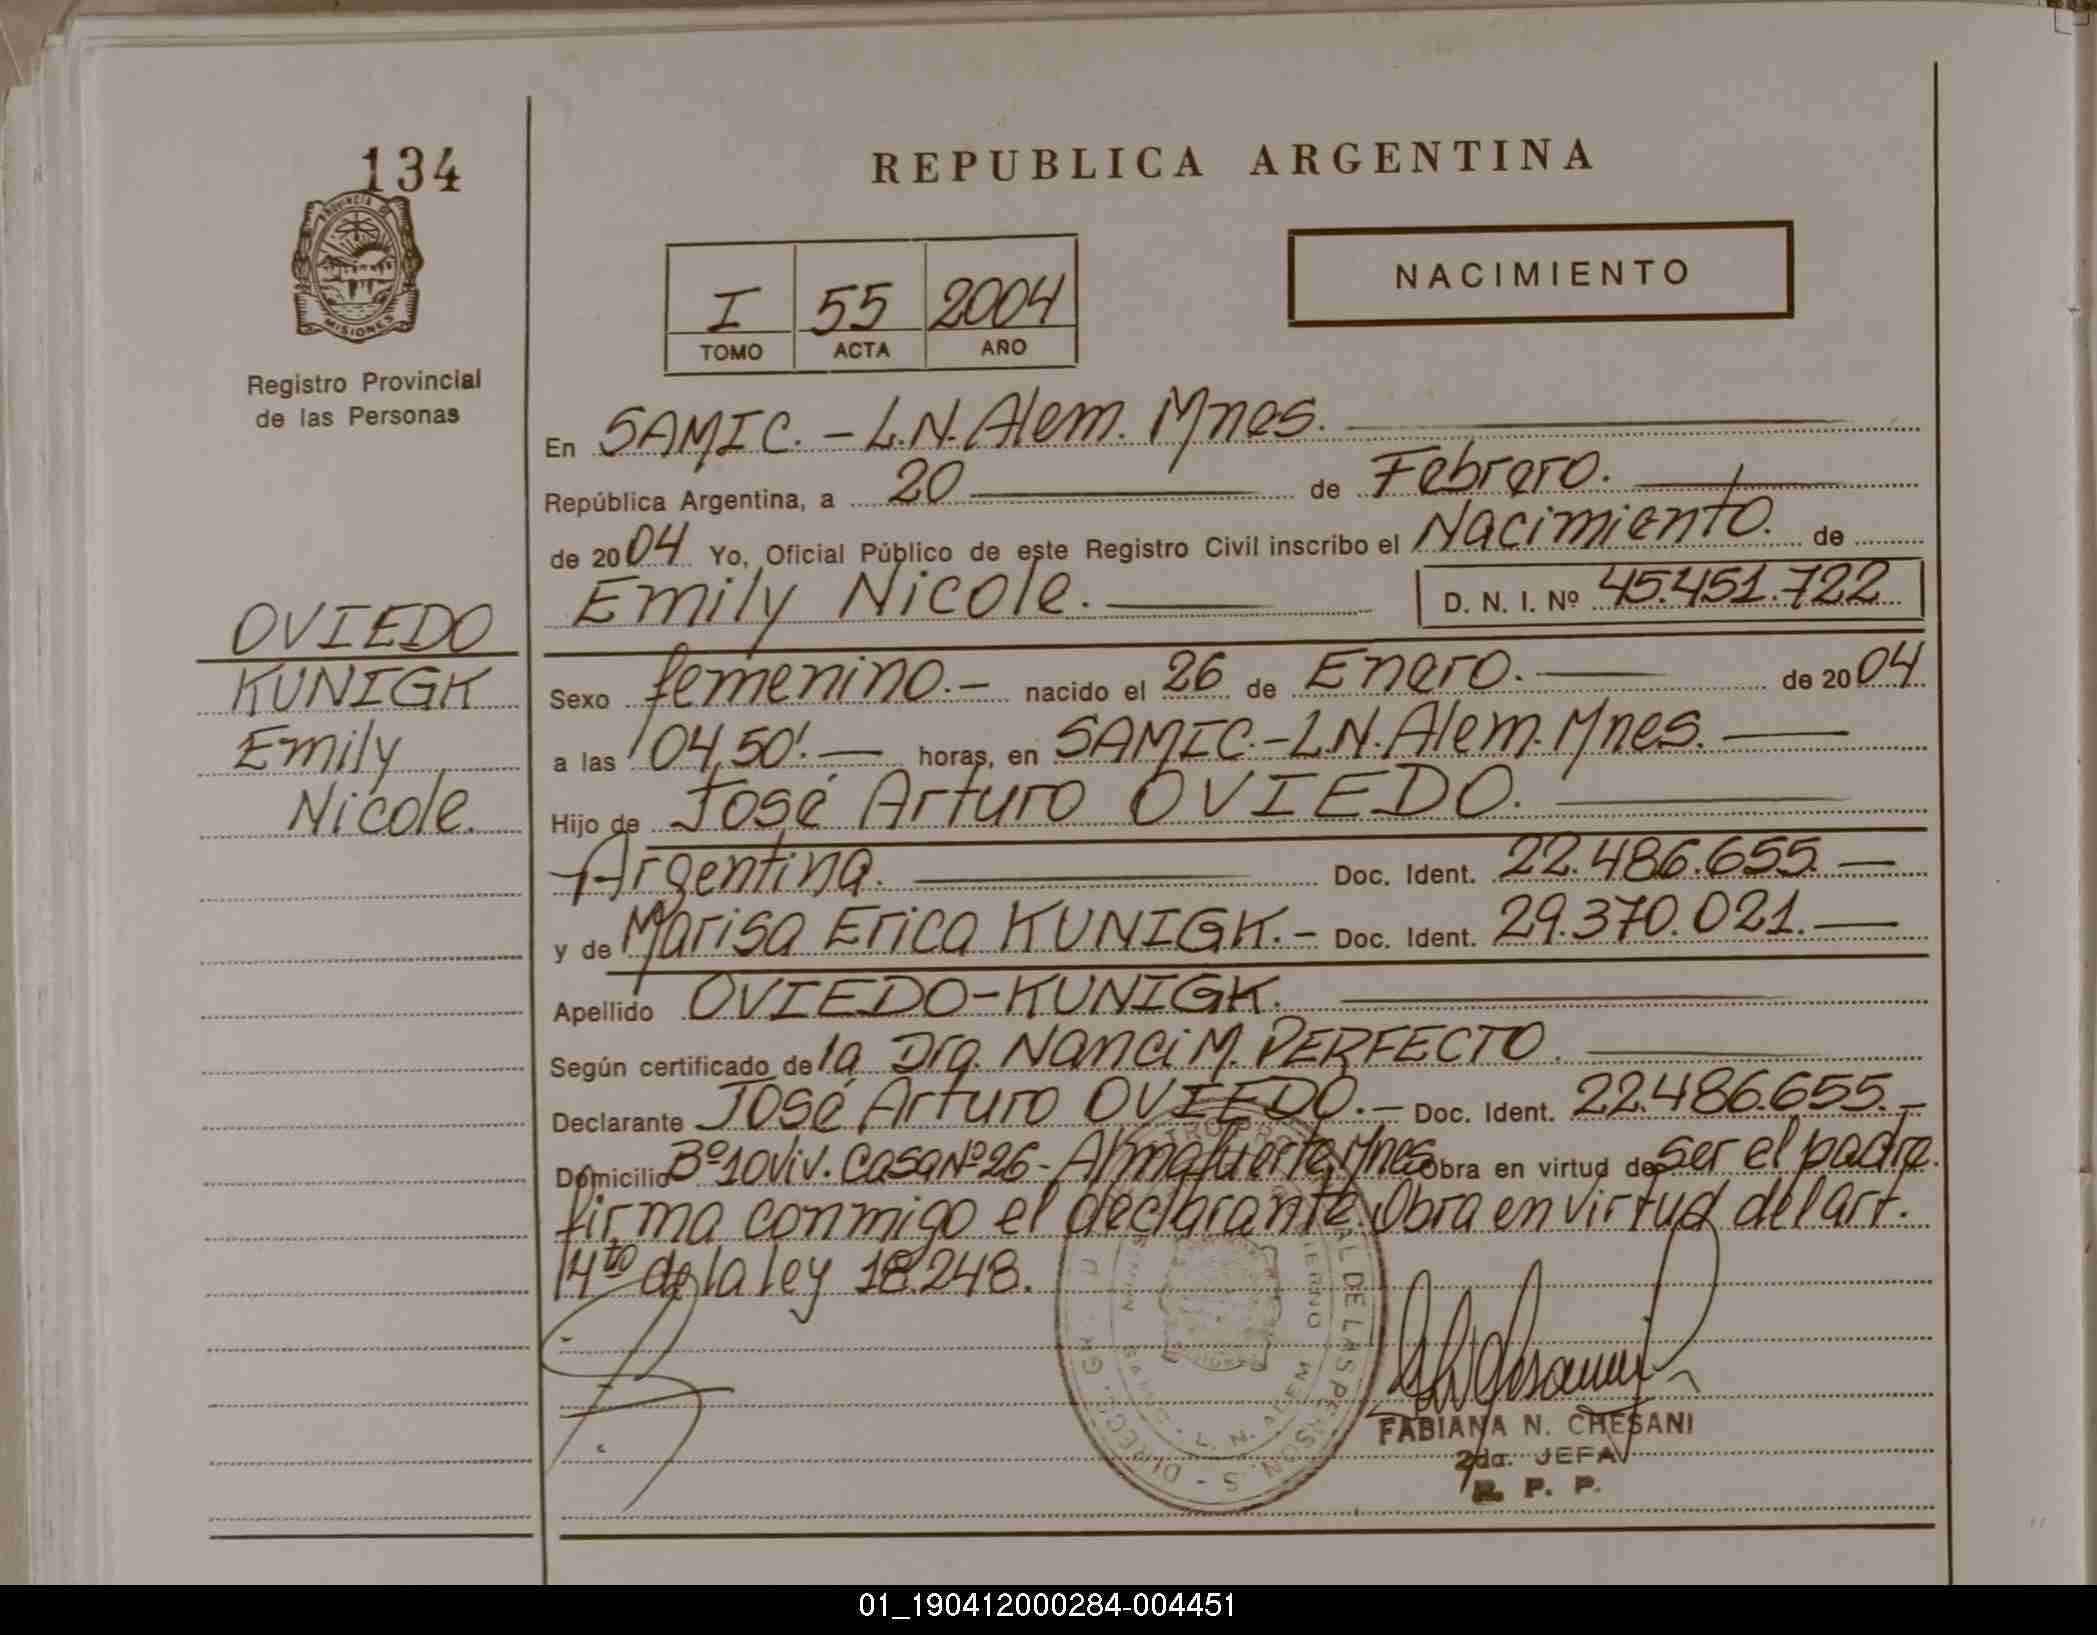 134
PROVINCIA DE
MISIONES
Registro Provincial
de las Personas
OVIEDO
KUNIGK
Emily
Nicole.
REPUBLICA ARGENTINA
I 55 2004
TOMO ACTA AÑO
NACIMIENTO
En SAMIC. - L.N. Alem. Mnes.
República Argentina, a 20 de Febrero.
de 2004 Yo, Oficial Público de este Registro Civil inscribo el Nacimiento. de
Emily Nicole. D. N. I. Nº 45.451.722
Sexo femenino.- nacido el 26 de Enero. de 2004
a las 04,50'. horas, en SAMIC.-L.N. Alem. Mnes.
Hijo de José Arturo OVIEDO.
Argentina. Doc. Ident. 22.486.655.
y de Marisa Erica KUNIGK.- Doc. Ident. 29.370.021.
Apellido OVIEDO-KUNIGK.
Según certificado de la Dra. Nanci M. PERFECTO.
Declarante José Arturo OVIEDO.- Doc. Ident. 22.486.655.-
Domicilio Bº 10 Viv. Casa Nº 26 - Almafuerte, Mnes. Obra en virtud de ser el padre.
firma conmigo el declarante. Obra en virtud del art.
14to de la ley 18.248.
L. N. ALEM
FABIANA N. CHESANI
2da. JEFA
R. P. P.
01_190412000284-004451